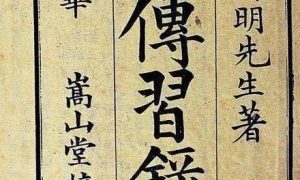 明先生著
傳習錄
嵩山堂